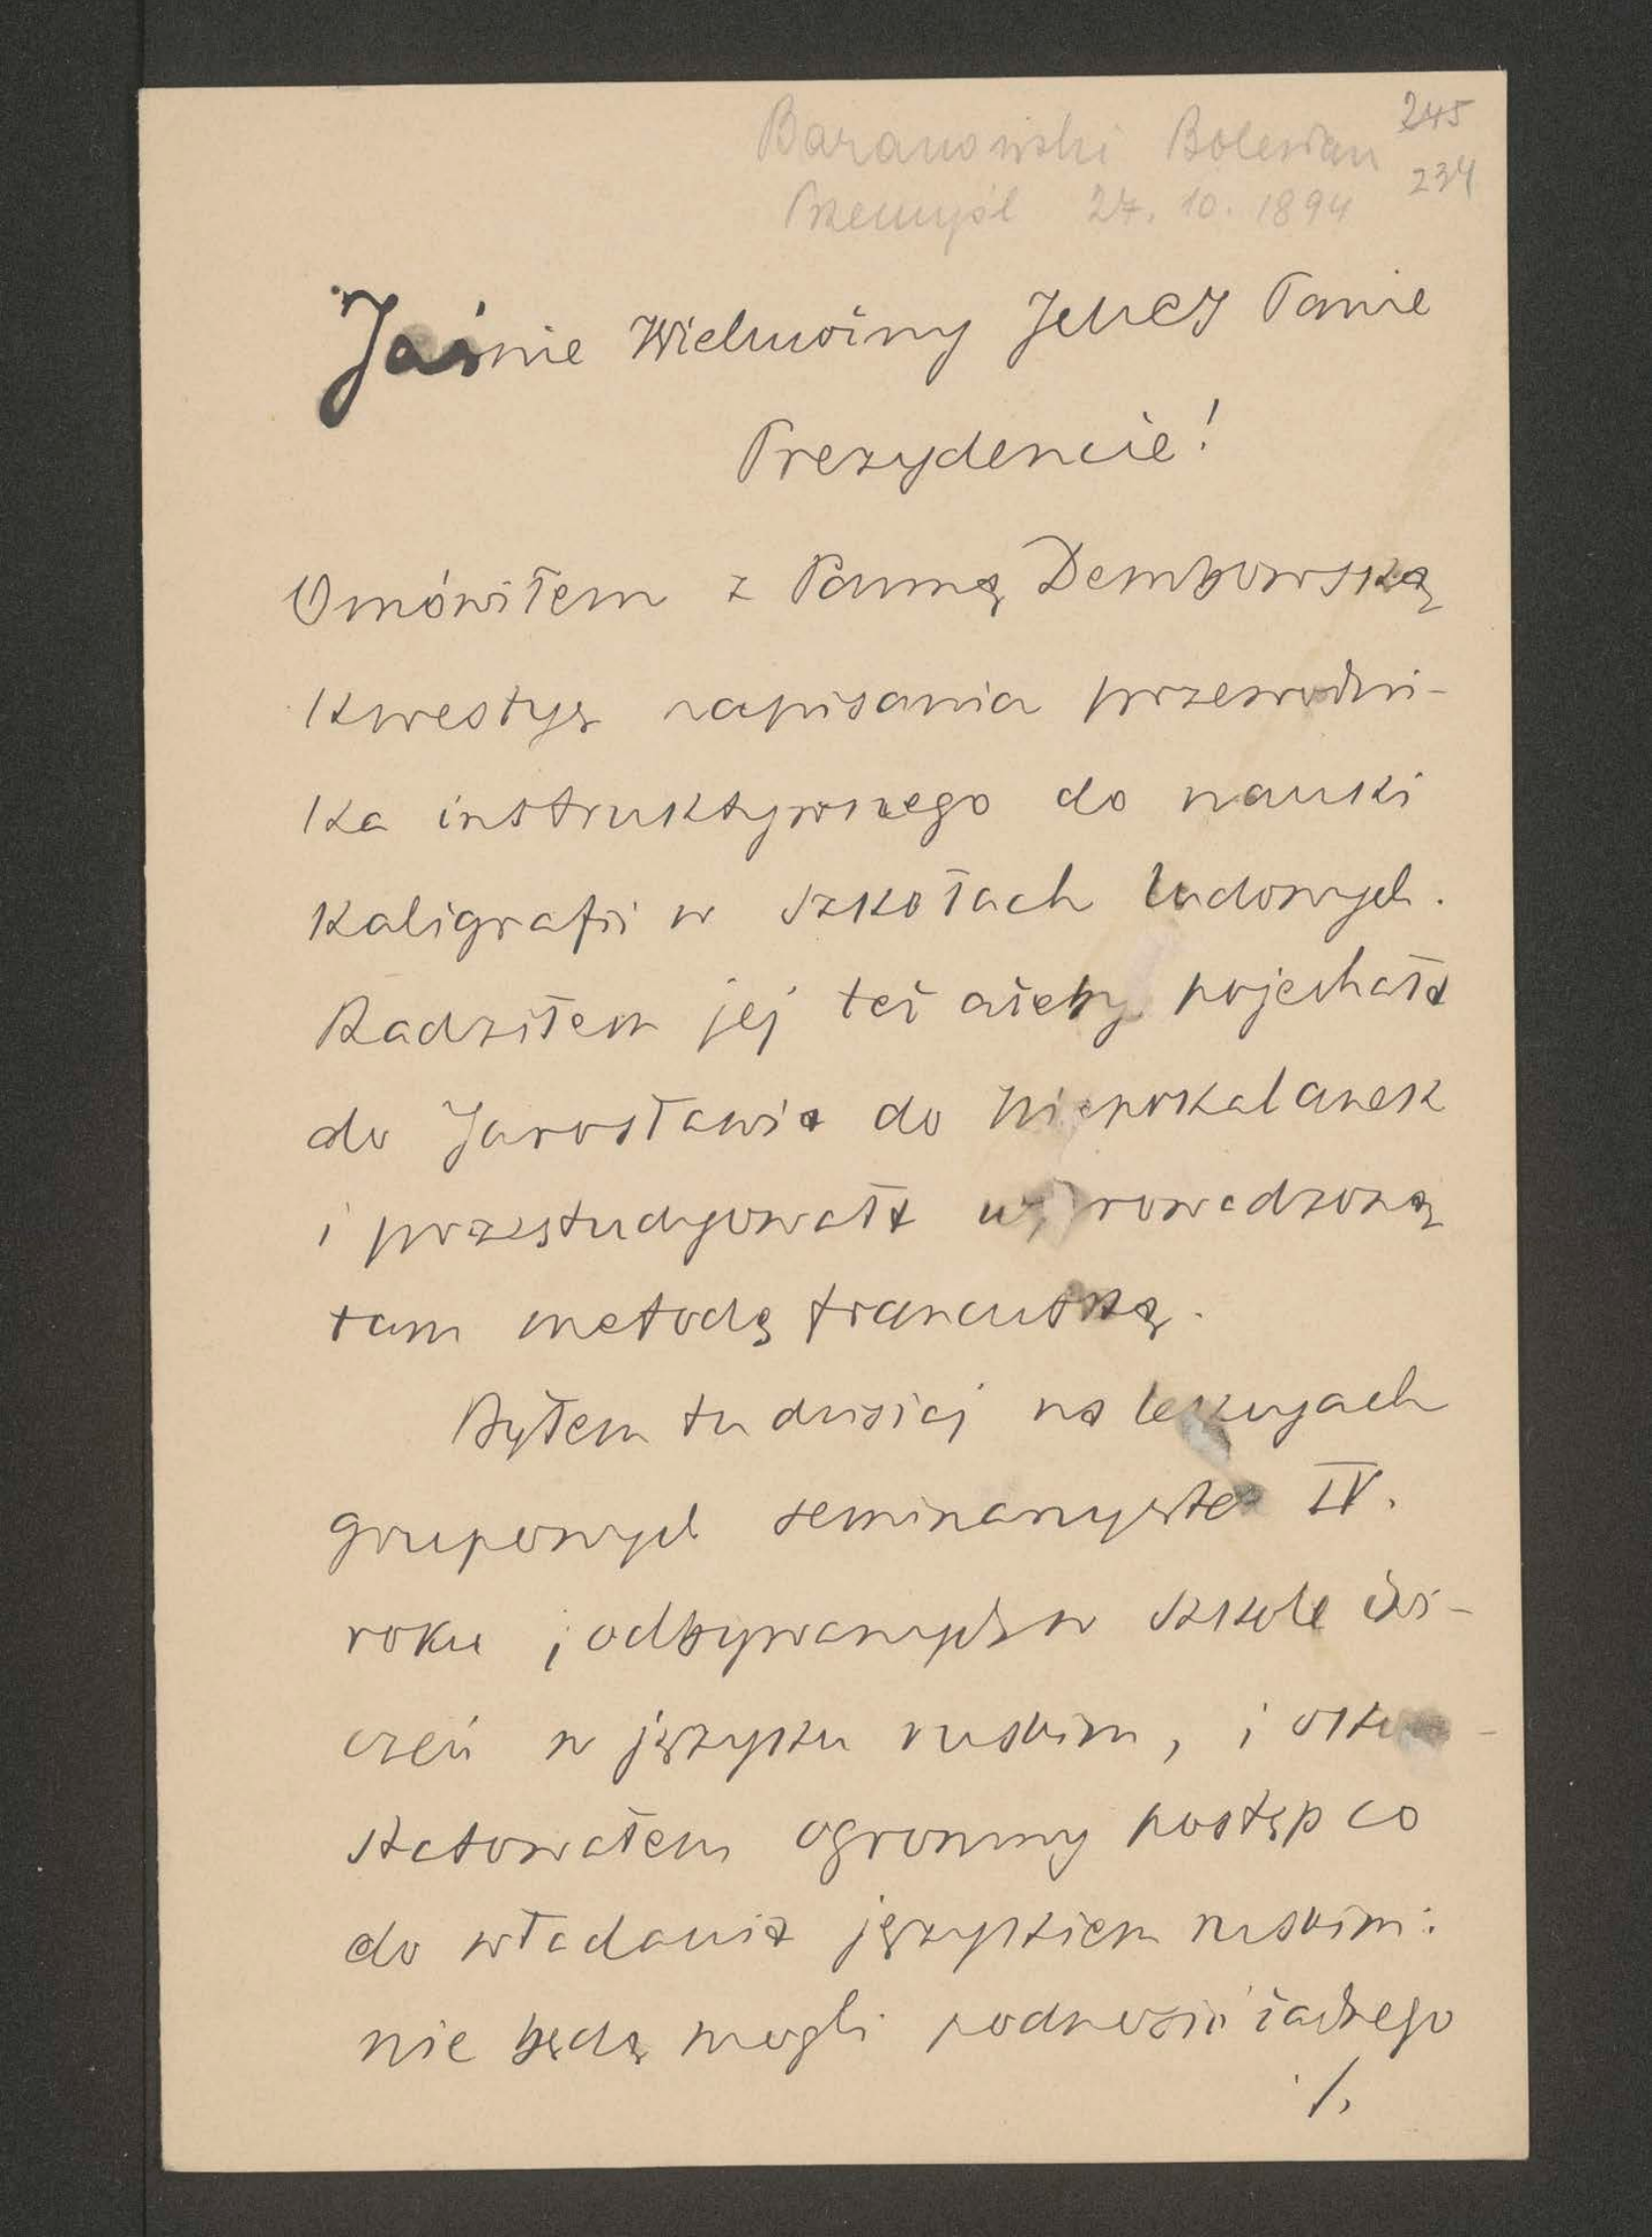 Baranowski Bolesław 245
Przemyśl 27. 10. 1894 234
Jaśnie Wielmożny JMCJ Panie
Prezydencie!
Omówiłem z Panną Dembowską
kwestyę napisania przewodni-
ka instruktywnego do nauki
kaligrafii w szkołach ludowych.
Radziłem jej też ażeby pojechała
do Jarosławia do Niepokalanek
i przestudyowała wprowadzoną
tam metodę francuską.
Byłem tu dzisiaj na lekcyach
grupowych seminarzystek IV.
roku, odbywanych w szkole ćwi-
czeń w języku ruskim, i
statowałem ogromny postęp co
do władania językiem ruskim:
nie będą mogli podnosić żadnego
./.